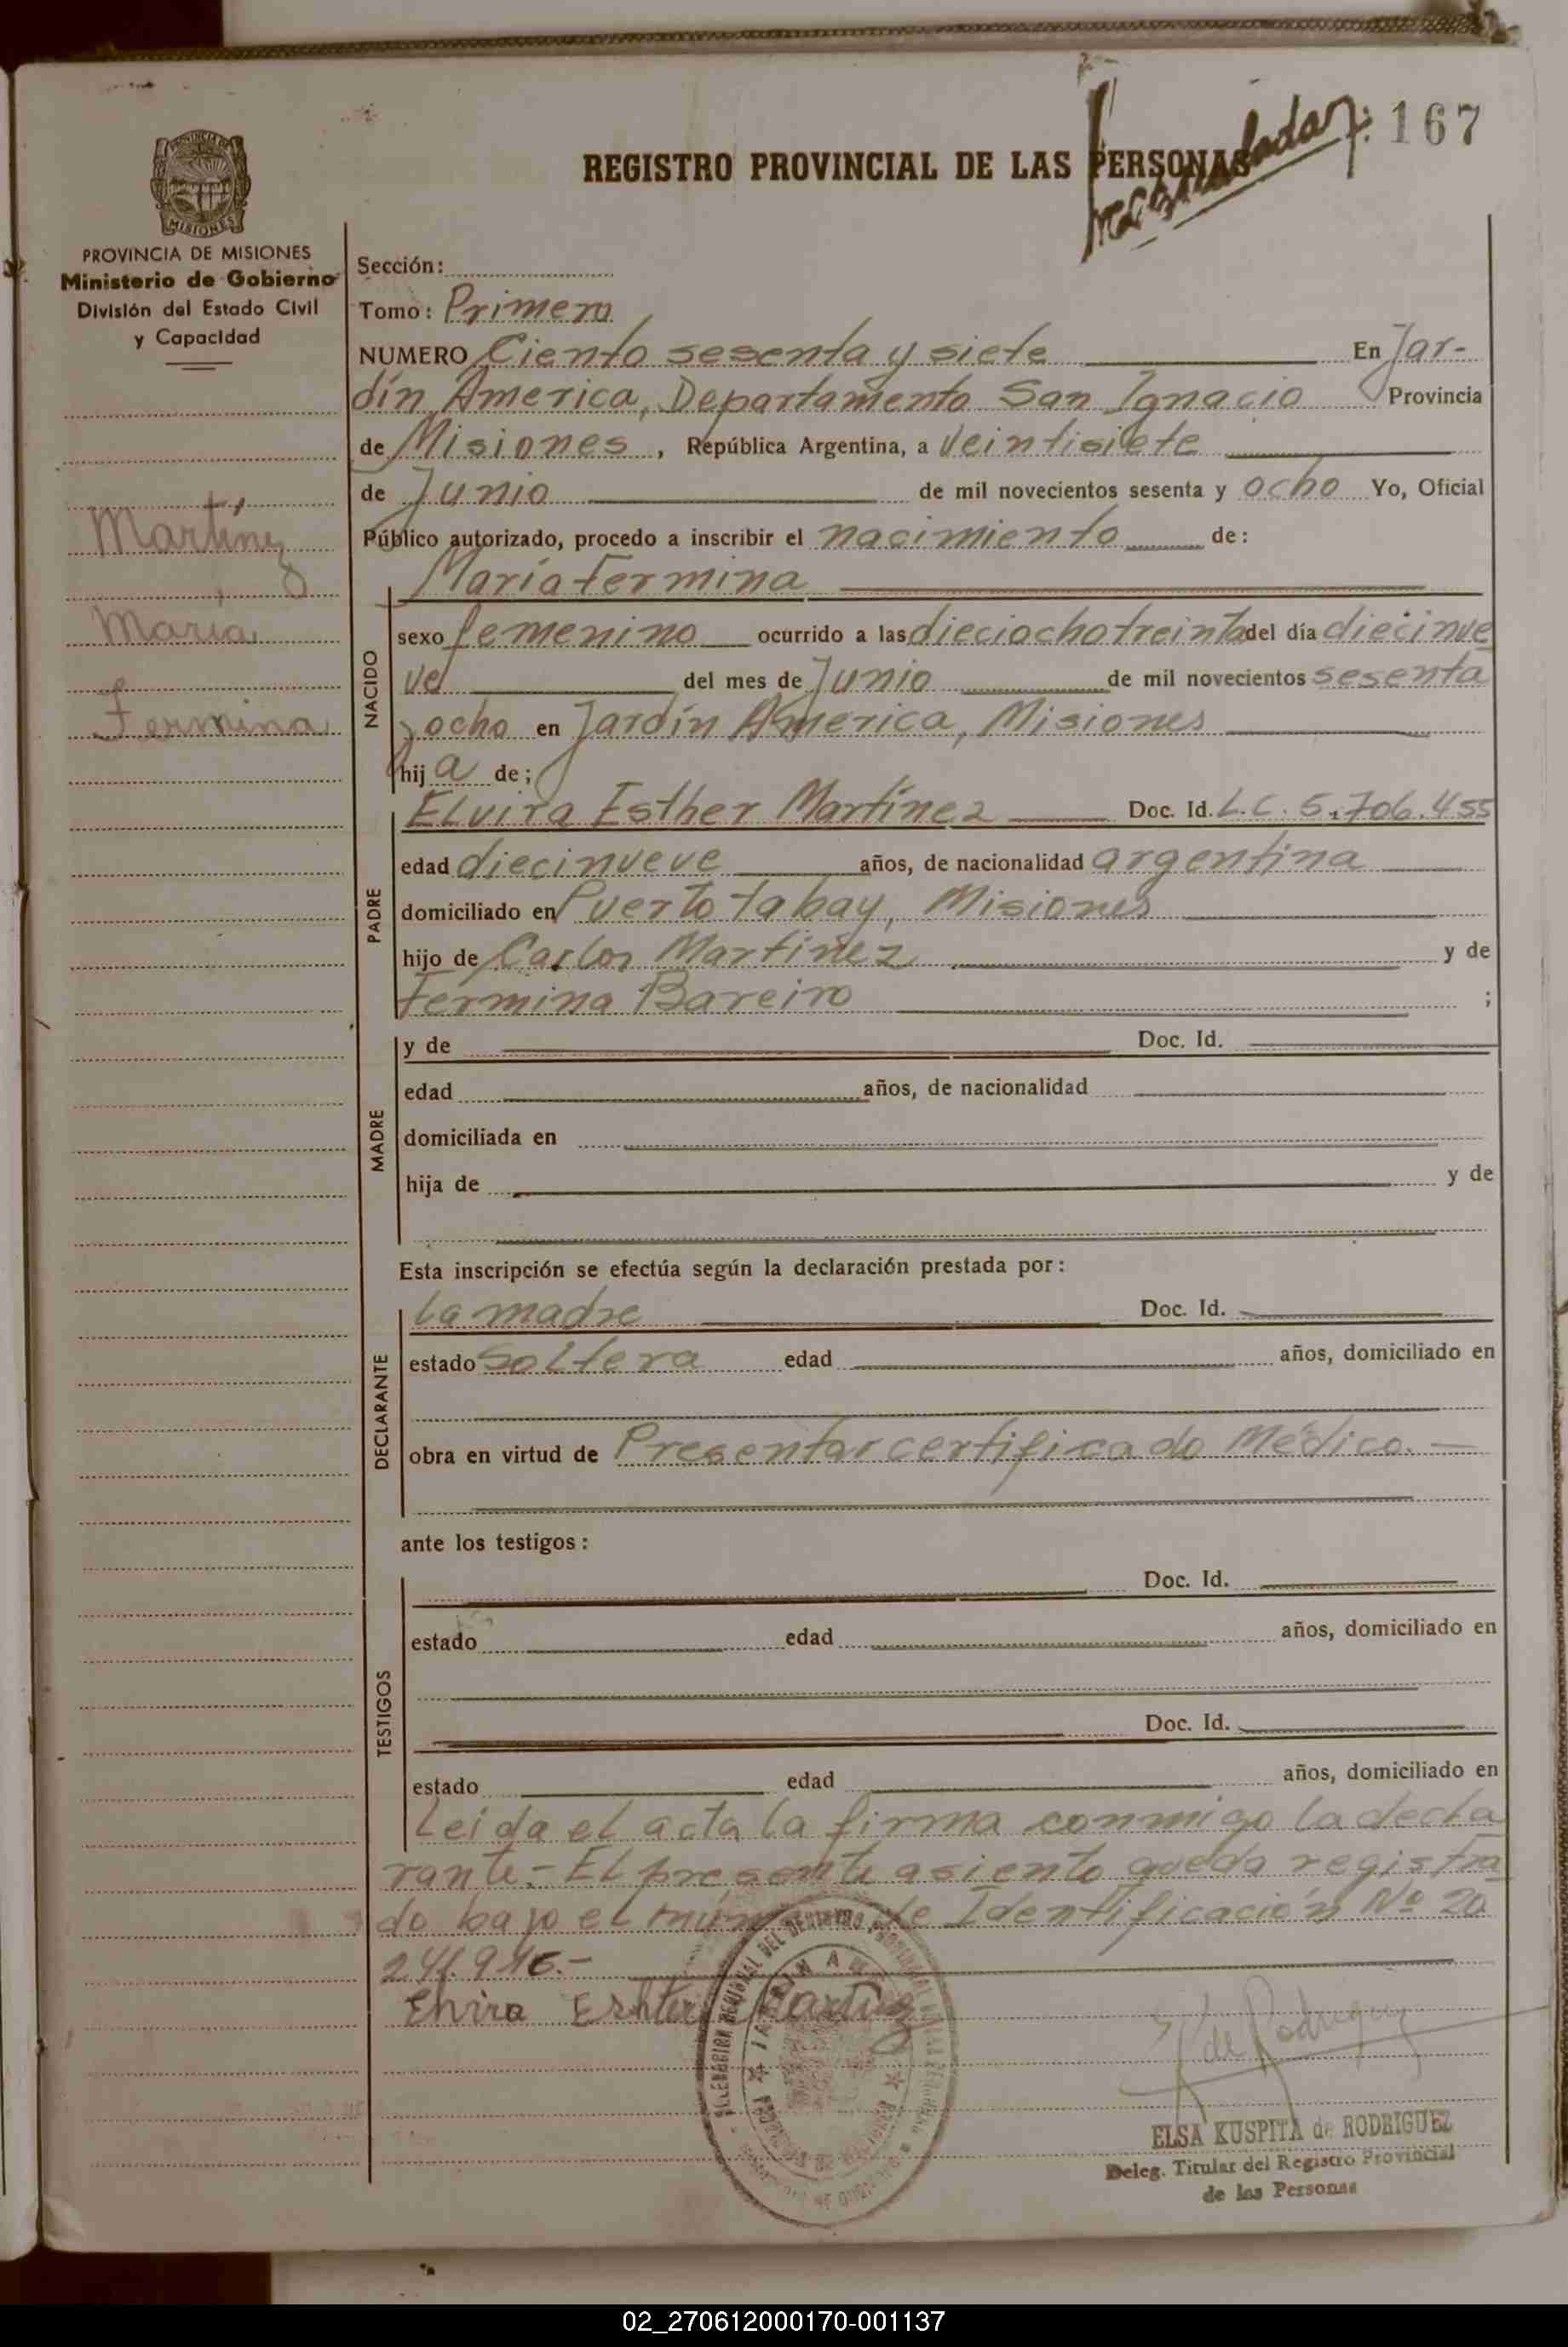 167
REGISTRO PROVINCIAL DE LAS PERSONAS
PROVINCIA DE MISIONES
Ministerio de Gobierno
División del Estado Civil
y Capacidad
Martínez
María
Fermina
Sección:
Tomo: Primero
NUMERO Ciento sesenta y siete En Jar-
dín America, Departamento San Ignacio Provincia
de Misiones, República Argentina, a veintisiete
de Junio de mil novecientos sesenta y ocho Yo, Oficial
Público autorizado, procedo a inscribir el nacimiento de:
María Fermina
NACIDO
sexo femenino ocurrido a las dieciocho treinta del día diecinue
ve del mes de Junio de mil novecientos sesenta
y ocho en Jardín America, Misiones
hij a de;
PADRE
Elvira Esther Martínez Doc. Id. L.C. 5.706.455
edad diecinueve años, de nacionalidad argentina
domiciliado en Puerto tabay, Misiones
hijo de Carlos Martinez y de
Fermina Bareiro ;
MADRE
y de Doc. Id.
edad años, de nacionalidad
domiciliada en
hija de y de
Esta inscripción se efectúa según la declaración prestada por:
DECLARANTE
la madre Doc. Id.
estado Soltera edad años, domiciliado en
obra en virtud de Presentar certificado Médico.-
ante los testigos:
TESTIGOS
Doc. Id.
estado edad años, domiciliado en
Doc. Id.
estado edad años, domiciliado en
Leida el acta la firma conmigo la decla
rante.- El presente asiento queda registra
do bajo el de Identificación Nº 20
Elvira Martinez
de Rodriguez
ELSA KUSPITA de RODRIGUEZ
Deleg. Titular del Registro Provincial
de las Personas
02_270612000170-001137